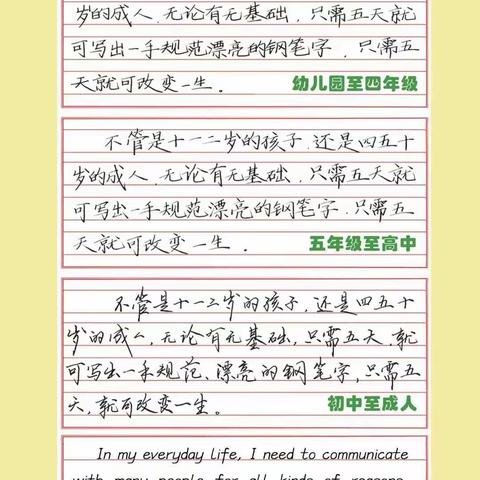 岁的成人，无论有无基础，只需五天就
可写出一手规范漂亮的钢笔字，只需五
天就可改变一生。
幼儿园至四年级
不管是十一二岁的孩子，还是四五十
岁的成人，无论有无基础，只需五天就
可写出一手规范漂亮的钢笔字，只需五
天就可改变一生。
五年级至高中
不管是十一二岁的孩子，还是四五十
岁的成人，无论有无基础，只需五天，就
可写出一手规范、漂亮的钢笔字，只需五
天，就可改变一生。
初中至成人
In my everyday life, I need to communicate
with many people for all kinds of reasons